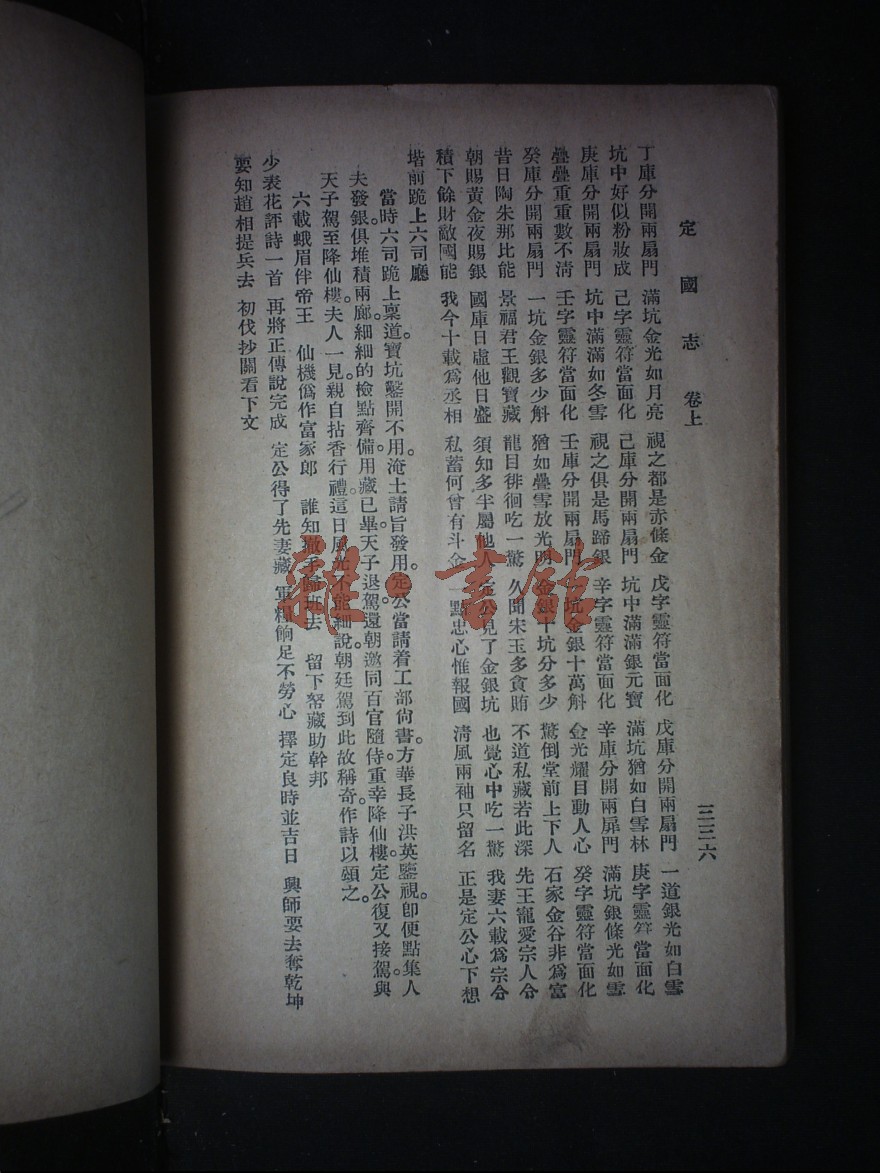 定國志 卷上
三三六
丁庫分開兩扇門 滿坑金光如月亮 視之都是赤條金 戊字靈符當面化 戊庫分開兩扇門 一道銀光如白雪
坑中好似粉妝成 己字靈符當面化 己庫分開兩扇門 坑中滿滿銀元寶 滿坑猶如白雪林 庚字靈符當面化
庚庫分開兩扇門 坑中滿滿如冬雪 視之俱是馬蹄銀 辛字靈符當面化 辛庫分開兩扉門 滿坑銀條光如雪
疊疊重重數不清 壬字靈符當面化 壬庫分開兩扇門 一坑金銀十萬斛 金光耀目動人心 癸字靈符當面化
癸庫分開兩扇門 一坑金銀多少斛 猶如疊雪放光明 金銀十坑分多少 驚倒堂前上下人 石家金谷非爲富
昔日陶朱那比能 景福君王觀寶藏 龍目徘徊吃一驚 久聞宋玉多貪賄 不道私藏若此深 先王寵愛宗人令
朝賜黃金夜賜銀 國庫日虛他日盛 須知多半屬他人 定公見了金銀坑 也覺心中吃一驚 我妻六載爲宗令
積下餘財敵國能 我今十載爲丞相 私蓄何曾有斗金 一點忠心惟報國 清風兩袖只留名 正是定公心下想
堦前跪上六司廳
當時六司跪上稟道。寶坑鑿開不用。淹土請旨發用。定公當請着工部尙書。方華長子洪英鑒視。卽便點集人
夫發銀。俱堆積兩廊。細細的檢點齊備。用藏已畢。天子退駕還朝。邀同百官隨侍。重幸降仙樓。定公復又接駕。與
天子駕至降仙樓。夫人一見親自拈香行禮。這日風光不能細說。朝廷駕到此故稱奇。作詩以頌之。
六載蛾眉伴帝王 仙機僞作富家郎 誰知撤手歸班去 留下帑藏助幹邦
少表花評詩一首 再將正傳說完成 定公得了先妻藏 軍糧餉足不勞心 擇定良時並吉日 興師要去奪乾坤
要知趙相提兵去 初伐抄關看下文
雜·書館